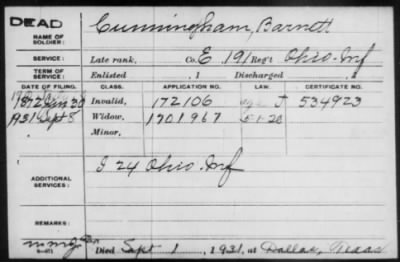 DEAD
NAME OF SOLDIER: Cunningham, Barnett
SERVICE: Late rank, Co. E, 191 Reg't Ohio Inf
TERM OF SERVICE: Enlisted , 1 Discharged , 1
DATE OF FILING. CLASS. APPLICATION NO. LAW. CERTIFICATE NO.
1872 Jan 30 Invalid, 172106 534923
1931 Sept 8 Widow, 1701967 5-1-20
Minor,
ADDITIONAL SERVICES: I 24 Ohio Inf
REMARKS:
Died Sept 1, 1931, at Dallas, Texas